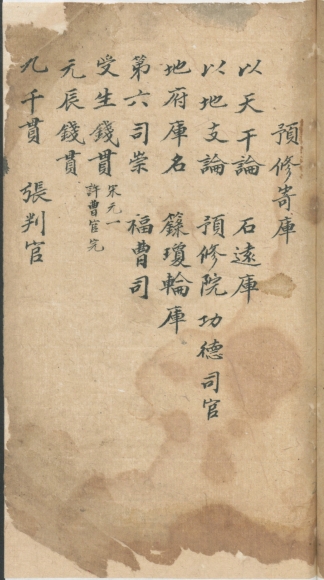 預修寄庫
以天干論 石遠庫
以地支論 預修院功德司官
地府庫名 籙瓊輪庫
第六司崇 福曹司
受生錢貫 宋元一 許曹官完
元辰錢貫
九千貫 張判官